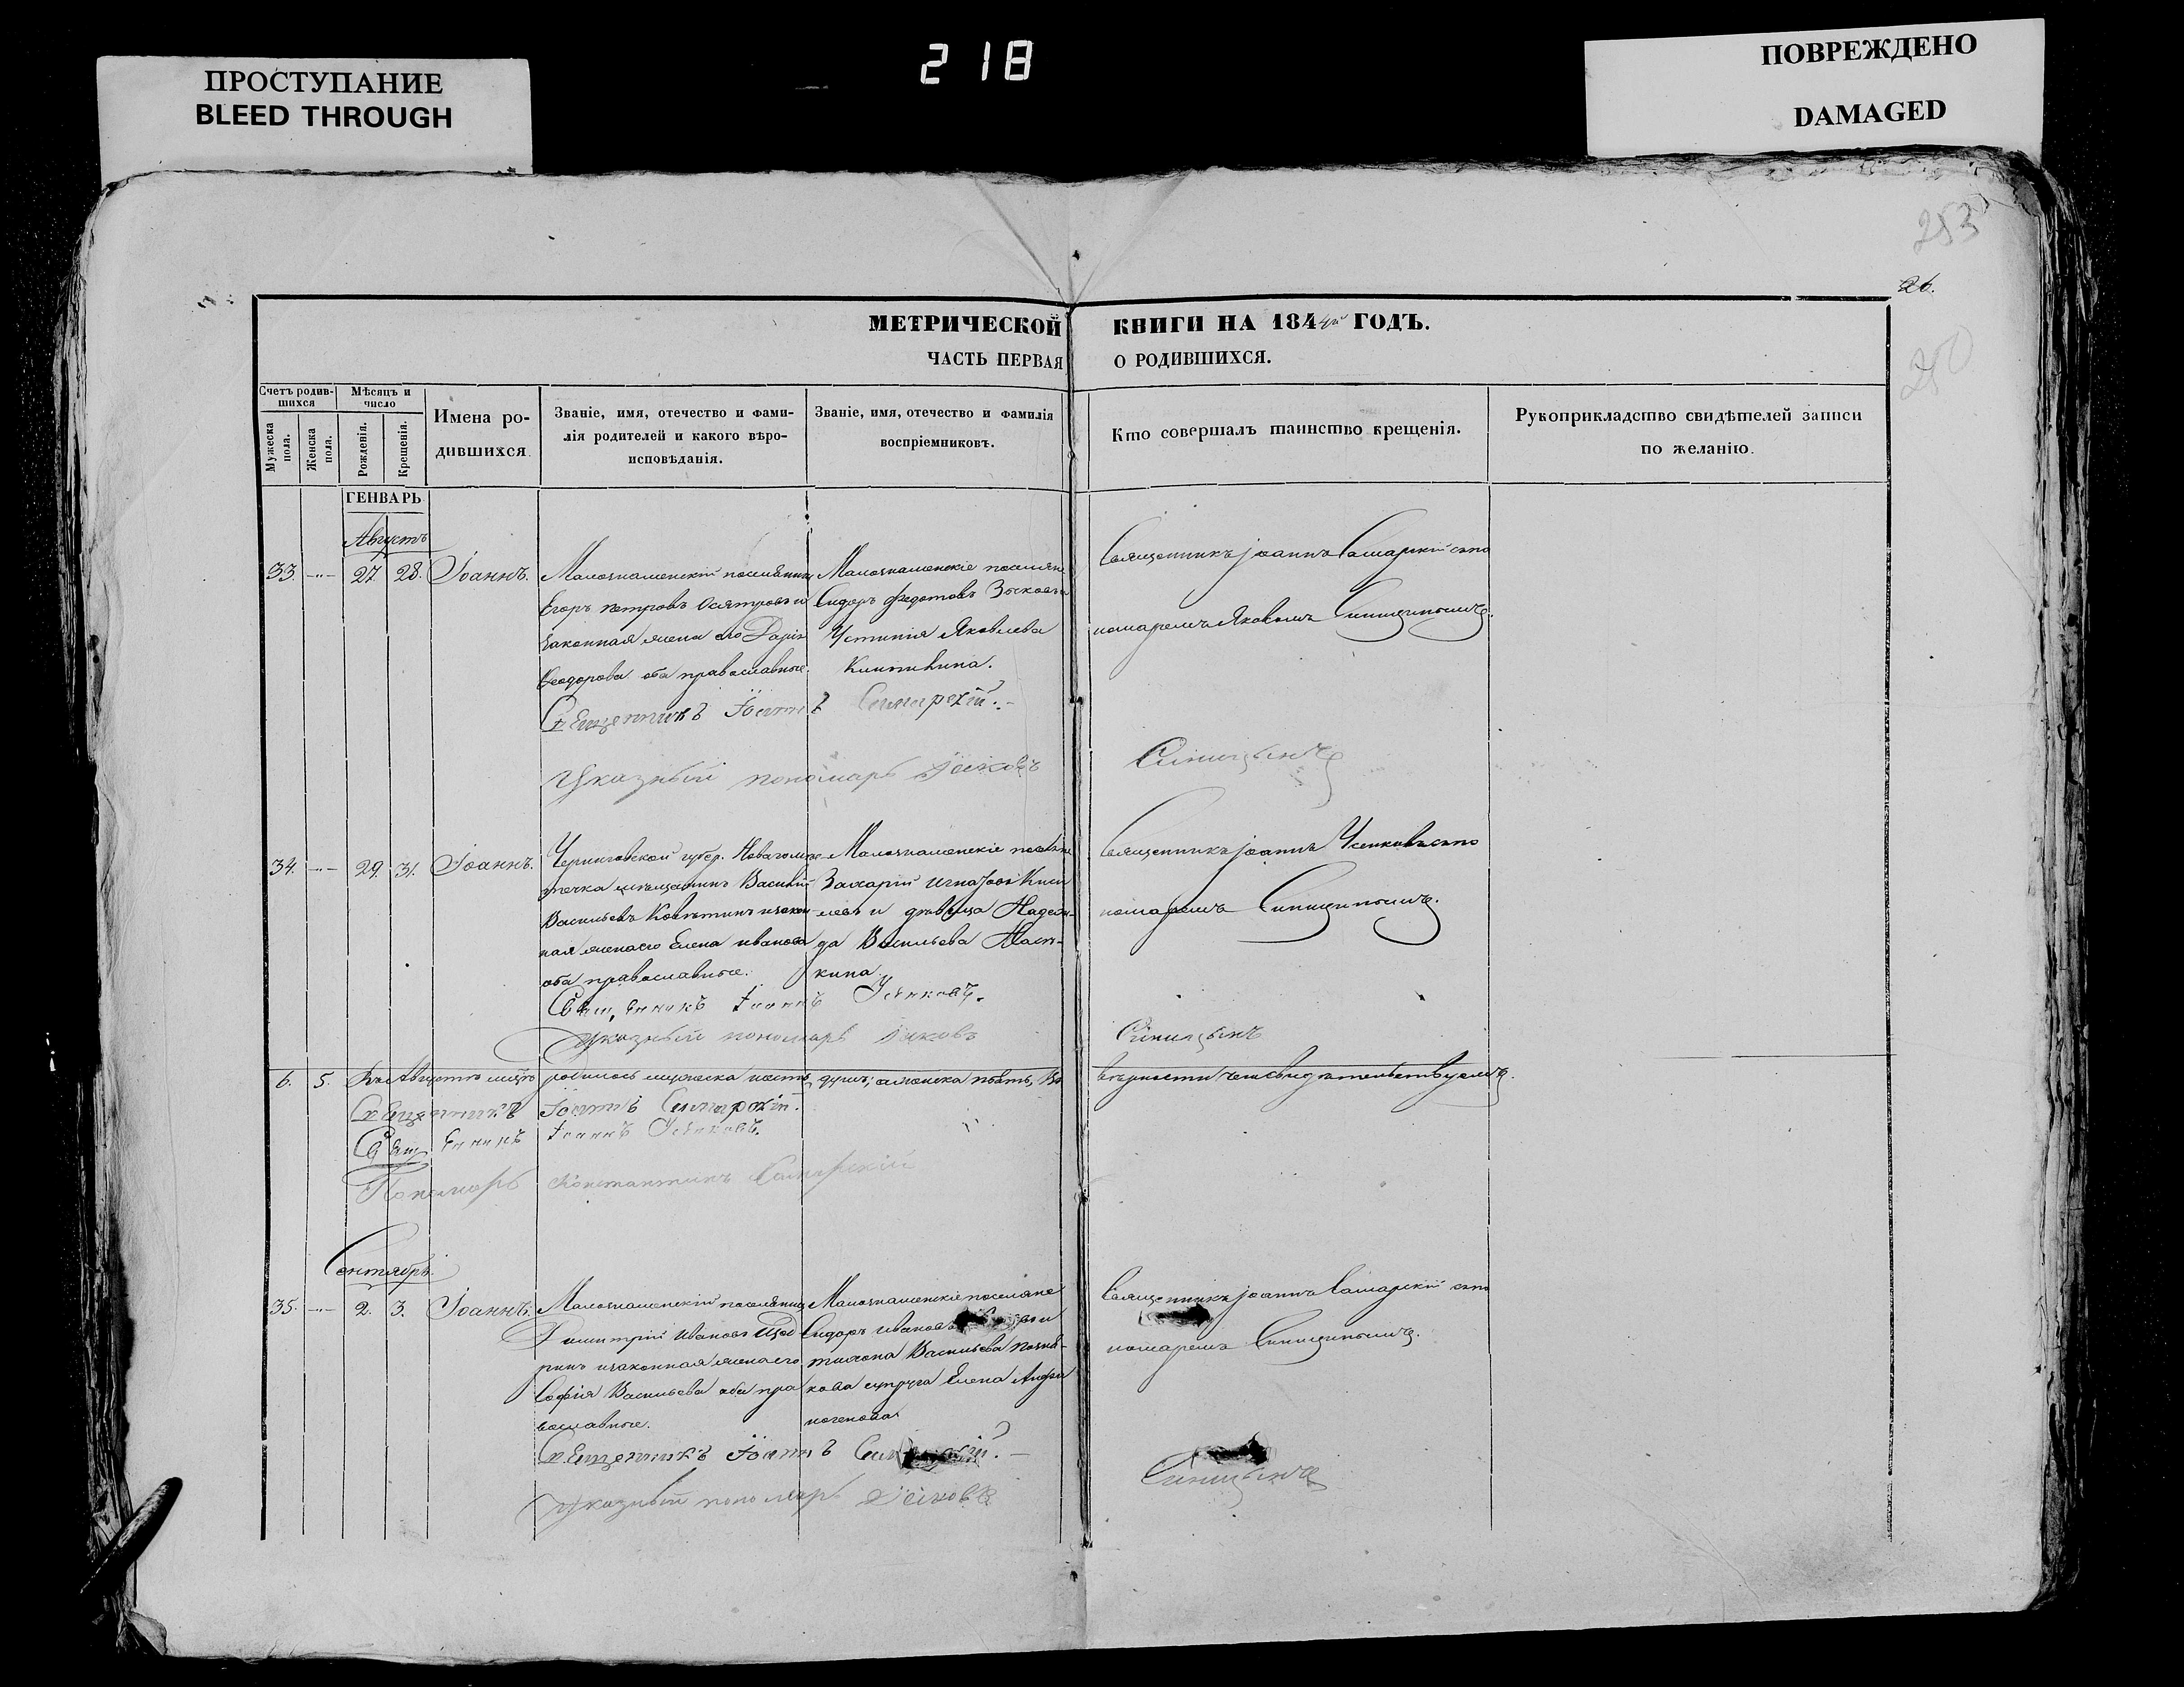 ПРОСТУПАНИЕ
BLEED THROUGH
218
ПОВРЕЖДЕНО
DAMAGED
253
26.
250
МЕТРИЧЕСКОЙ КНИГИ НА 1844й ГОДЪ.
ЧАСТЬ ПЕРВАЯ О РОДИВШИХСЯ.
Счетъ родившихся
Мужеска пола.
Женска пола.
Мѣсяцъ и число
Рожденія.
Крещенія.
Имена родившихся.
Званіе, имя, отечество и фамилія родителей и какого вѣроисповѣданія.
Званіе, имя, отечество и фамилія воспріемниковъ.
Кто совершалъ таинство крещенія.
Рукоприкладство свидѣтелей записи по желанію.
ГЕНВАРЬ
Августъ
33. 27. 28. Іоаннъ.
Малознаменскій поселянинъ
Егоръ Петровъ и
законная жена его Дарія
Феодорова оба православные.
Малознаменскіе поселяне
Сидоръ Федотовъ Зыковъ и
Устинія Яковлева
Священникъ Іоаннъ Самарскій съ по
номаремъ Яковомъ Синицинымъ.
Священникъ Іоаннъ Самарскій.
Указный пономарь Яковъ Синицынъ
34. 29. 31. Іоаннъ.
Черниговской губер.
мѣщанинъ Василій
Васильевъ и закон-
ная жена его Елена Иванова
оба православные.
Малознаменскіе поселяне
Захарій Игнатовъ Кисе
левъ и дѣвица Надеж-
да Васильева
кина.
Священникъ Іоаннъ Усенковъ съ по
номаремъ Синицинымъ.
Священникъ Іоаннъ Усенковъ.
Указный пономарь Яковъ Синицынъ
6. 5. Въ Августѣ мѣсяцѣ родилось мужеска шесть душъ; а женска пять, въ
вѣрности чемъ свидѣтельствуемъ.
Священникъ Іоаннъ Самарскій.
Священникъ Іоаннъ Усенковъ.
Пономарь Константинъ Самарскій
Сентябрь.
35. 2. 3. Іоаннъ.
Малознаменскій поселянинъ
Димитрій Ивановъ Щед
ринъ и законная жена его
Софія Васильева оба пра
вославные.
Малознаменскіе поселяне
Сидоръ Ивановъ
Васильева
кова супруга Елена
Священникъ Іоаннъ Самарскій съ по
номаремъ Синицинымъ.
Священникъ Іоаннъ
Указный пономарь Яковъ Синицынъ